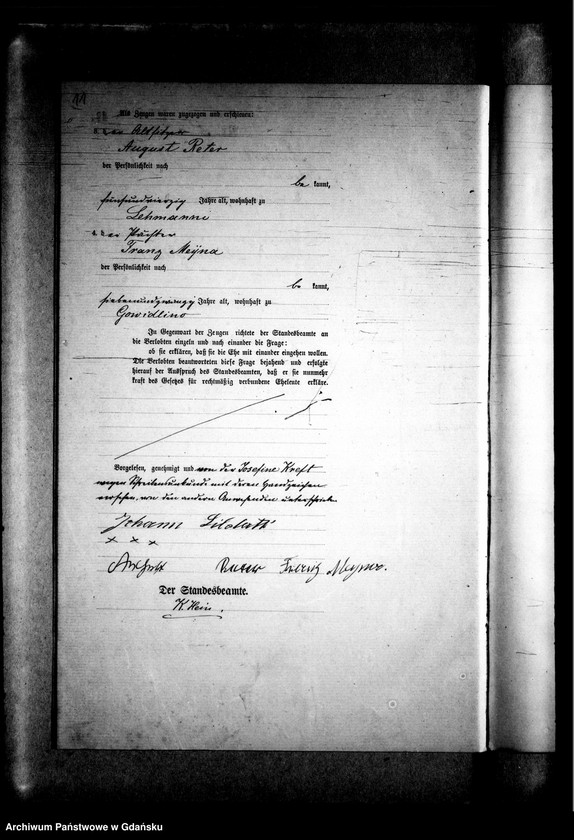 11
Als Zeugen waren zugezogen und erschienen:
der Altsitzer
August Reter
der Persönlichkeit nach
be kannt,
fünfundvierzig Jahre alt, wohnhaft zu
Lehmanni
der Pächter
Franz Meyna
der Persönlichkeit nach
be kannt,
siebenundzwanzig Jahre alt, wohnhaft zu
Gowidlino
In Gegenwart der Zeugen richtete der Standesbeamte an
die Verlobten einzeln und nach einander die Frage:
ob sie erklären, daß sie die Ehe mit einander eingehen wollen.
Die Verlobten beantworteten diese Frage bejahend und erfolgte
hierauf der Ausspruch des Standesbeamten, daß er sie nunmehr
kraft des Gesetzes für rechtmäßig verbundene Eheleute erkläre.
Vorgelesen, genehmigt und von der Josefine Kreft
wegen Schreibensunkunde mit deren Handzeichen
versehen, von den andern Anwesenden unterschrieben
Johann
x x x
August Reter Franz Meyna.
Der Standesbeamte.
K. Hein.
Archiwum Państwowe w Gdańsku